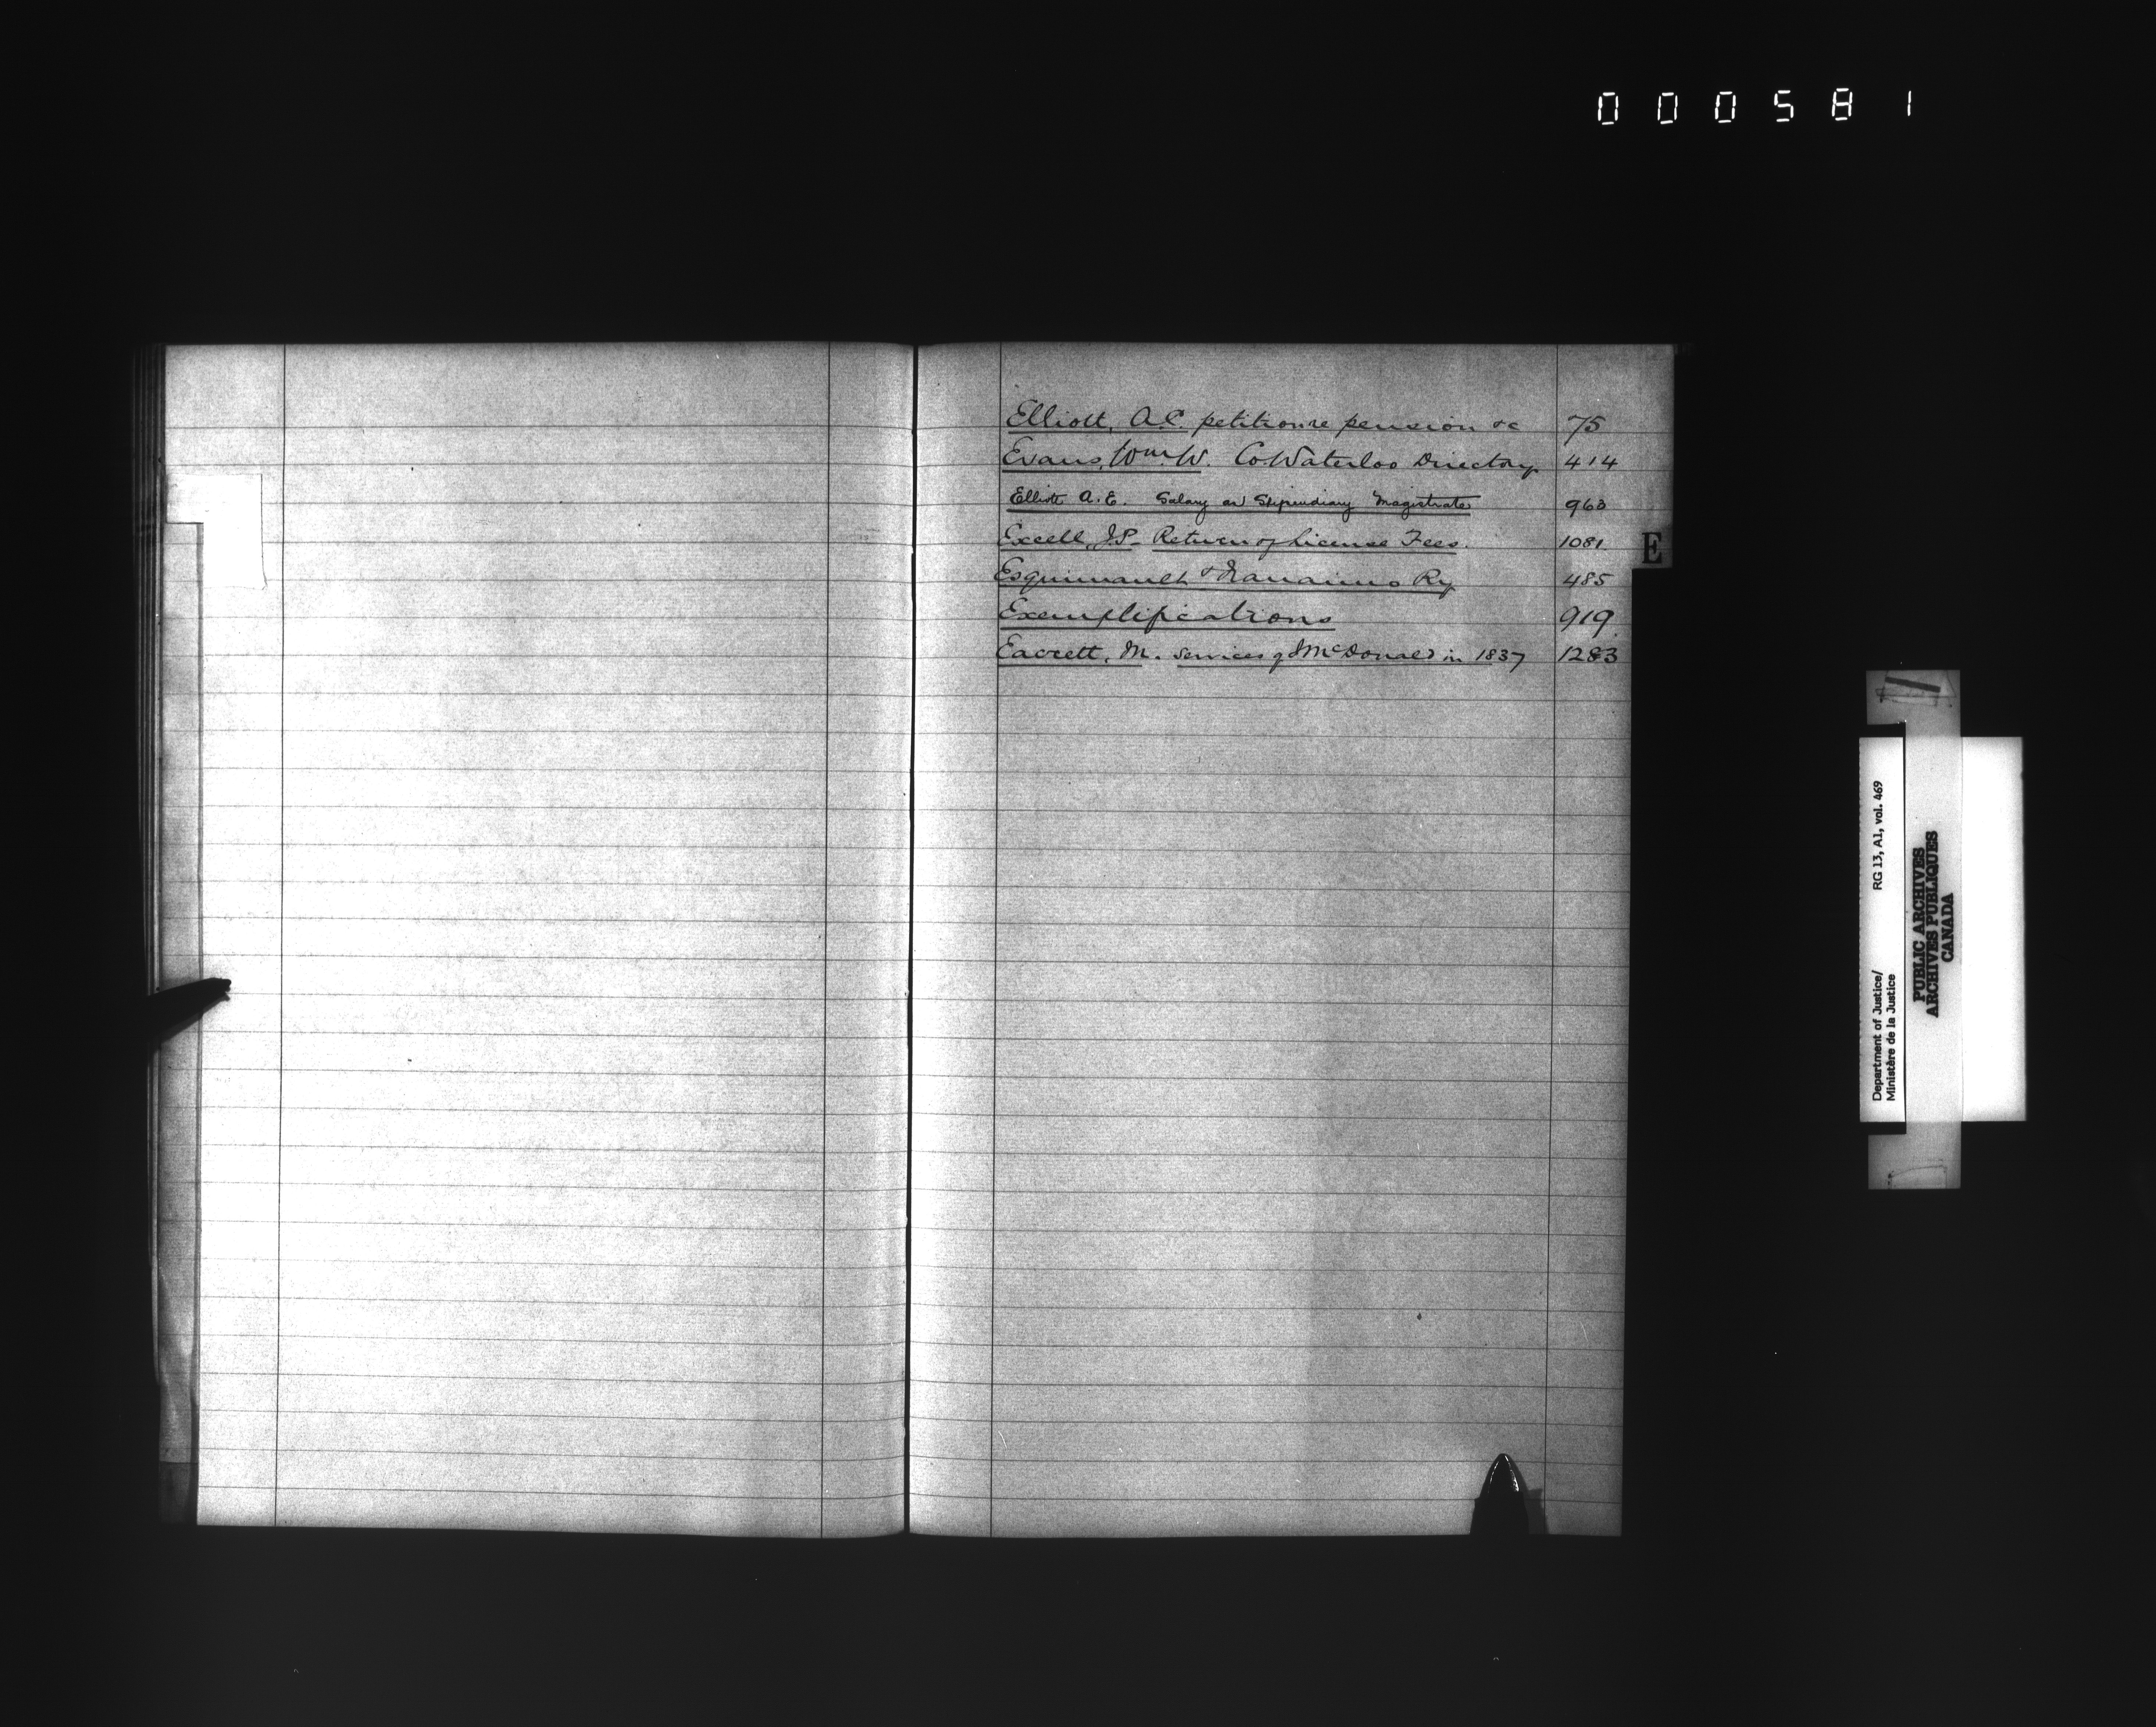 000581
Elliott, A.C. petition re pension &c 75
Evans, Wm. W. Co. Waterloo Directory 414
Elliott A.E. Salary as Stipendiary Magistrate 960
Excell, J.P. Return of License Fees. 1081
E
Esquimault & Nanaimo Ry 485
Exemplifications 919
M. services of J McDonald in 1837 1283
Department of Justice/ RG 13, A1, vol. 469
Ministère de la Justice
PUBLIC ARCHIVES
ARCHIVES PUBLIQUES
CANADA